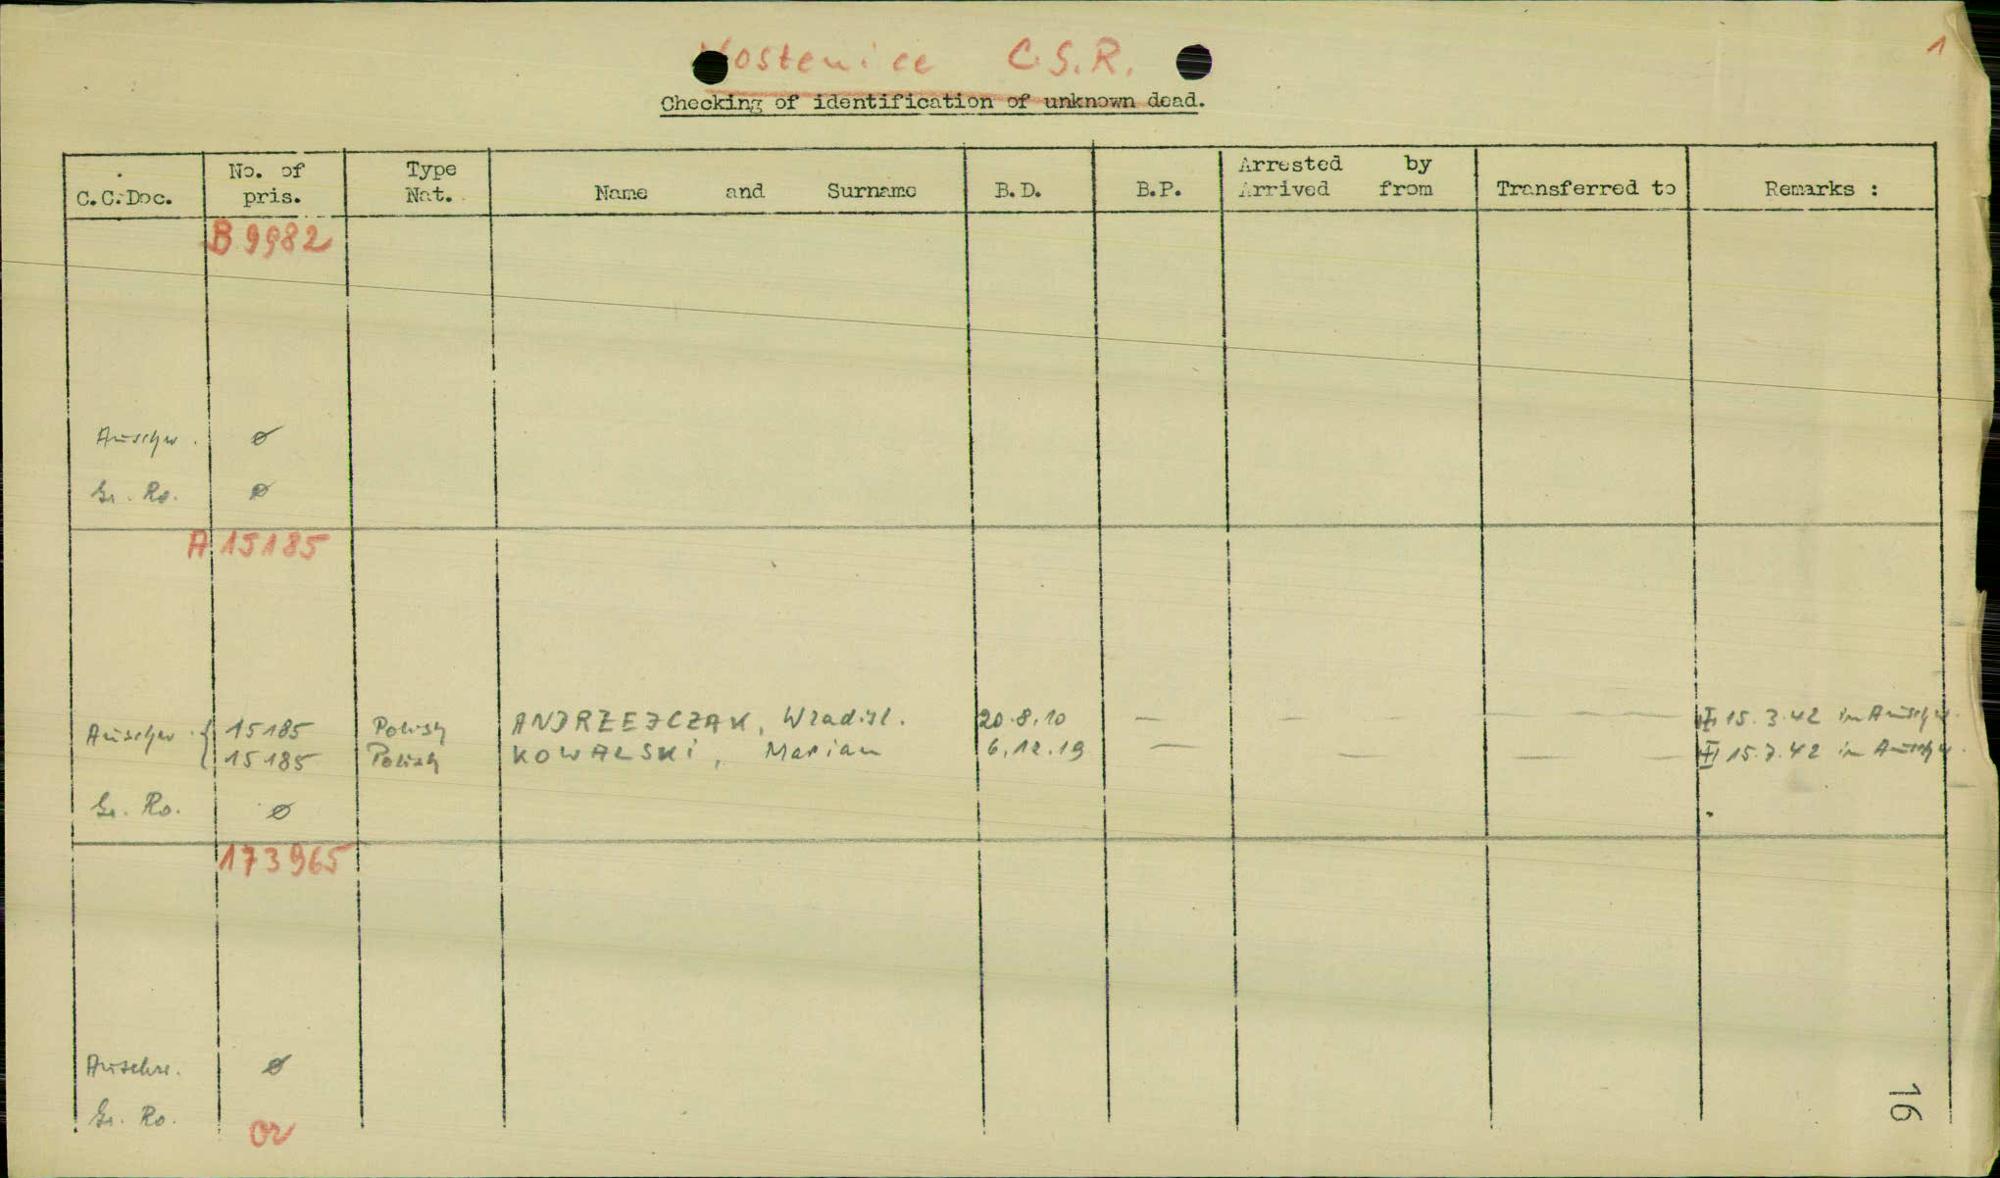 Vostenice C.S.R.
1
Checking of identification of unknown dead.
C.C.Doc. No. of pris. Type Nat. Name and Surname B.D. B.P. Arrested by Arrived from Transferred to Remarks :
B 9982
Auschw. ø
Gr. Ro. ø
A 15185
Auschw. { 15185 Polish ANDRZEJCZAK, Wladisl. 20.8.10 — — — — — 15.3.42 in Auschw.
15185 Polish KOWALSKI, Marian 6.12.19 — — — — 15.7.42 in Auschw.
Gr. Ro. ø
173965
Auschw. ø
Gr. Ro.
16